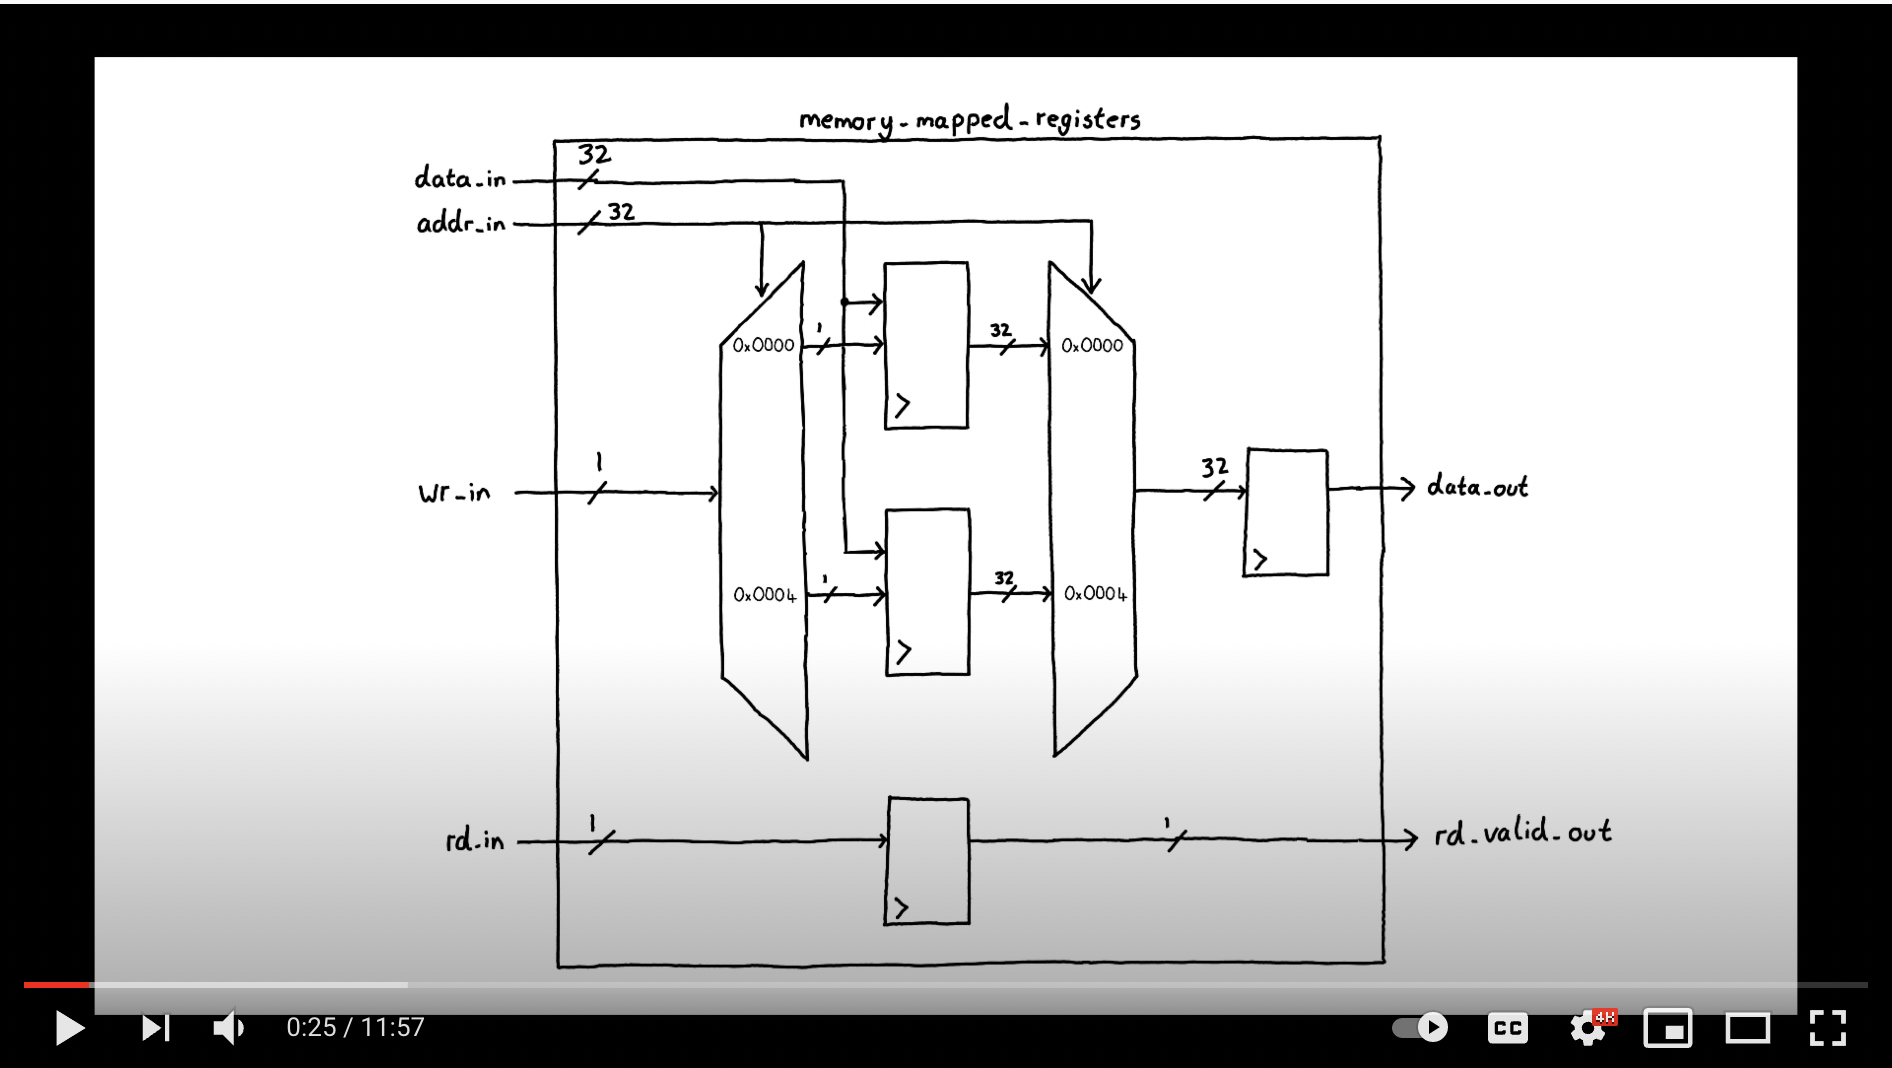 memory-mapped-registers
32
data-in
32
addr-in
1
32
0x0000
0x0000
1
wr-in
32
data-out
1
32
0x0004
0x0004
1
1
rd-in
rd-valid-out
0:25 / 11:57
CC
4K